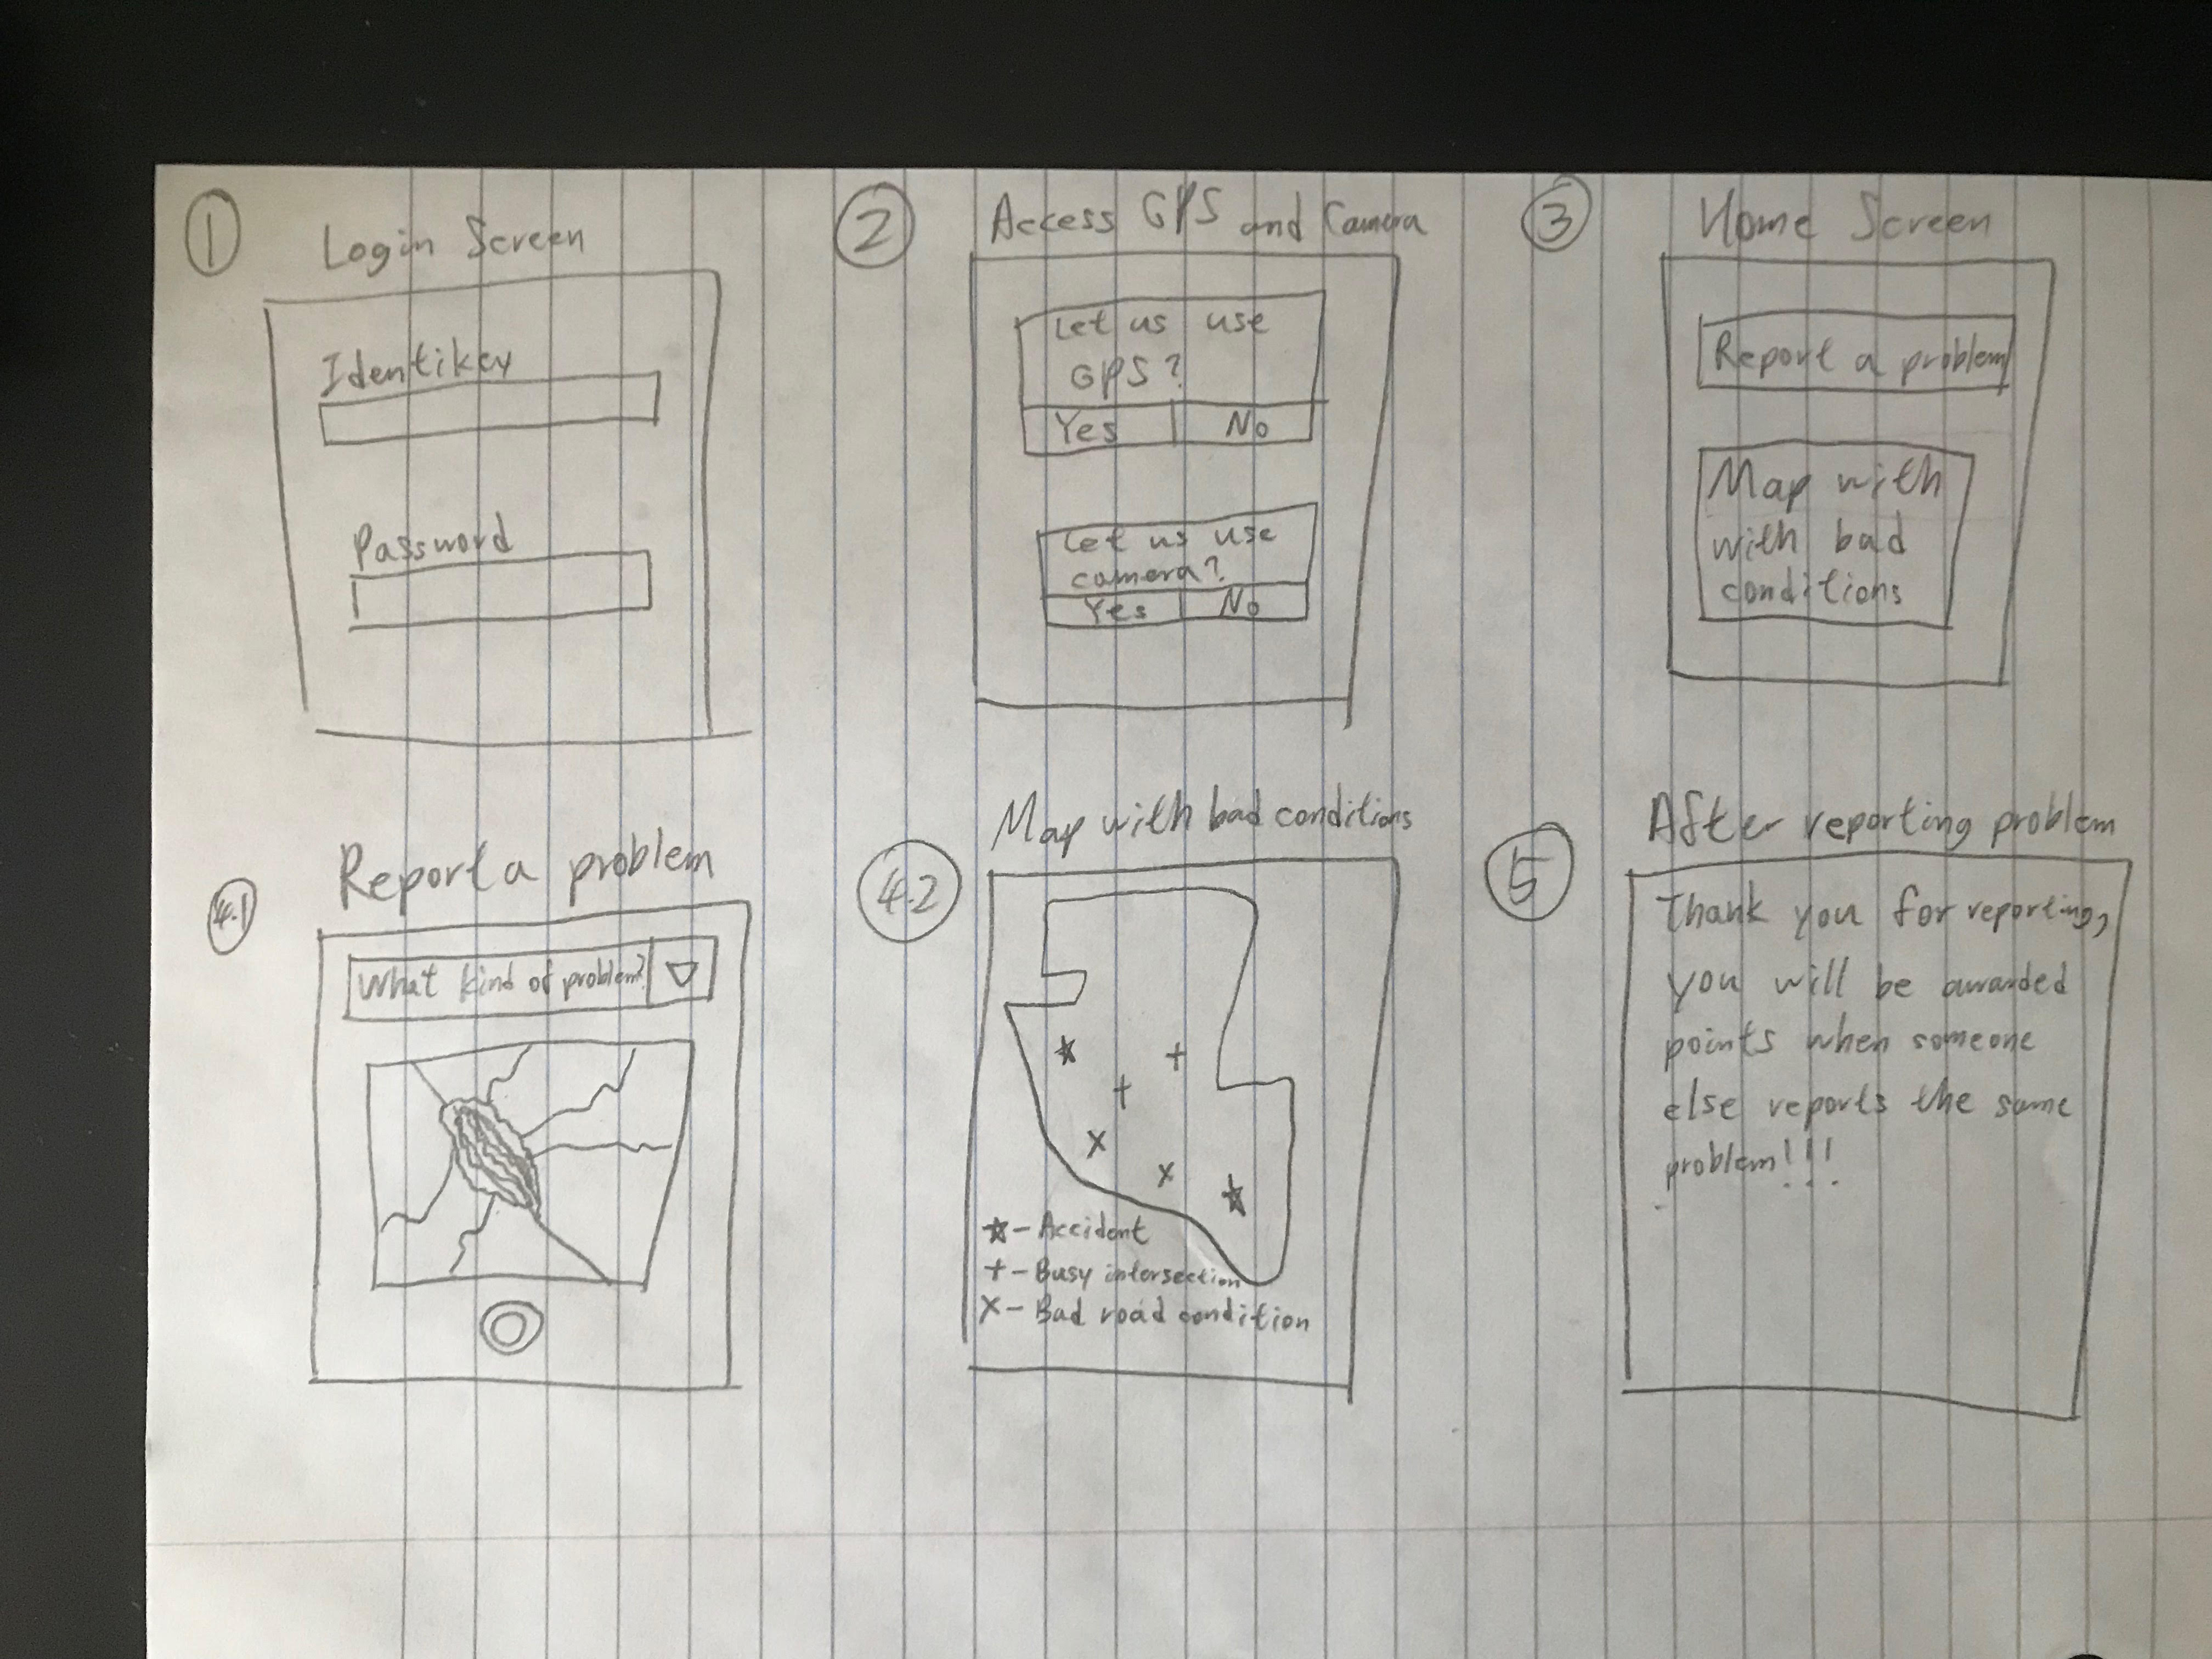 1
Login Screen
Identikey
Password
2
Access GPS and Camera
Let us use
GPS?
Yes No
Let us use
camera?
Yes No
3
Home Screen
Report a problem
Map with
with bad
conditions
4.1
Report a problem
What kind of problem?
4.2
Map with bad conditions
☆ - Accident
+ - Busy intersection
X - Bad road condition
5
After reporting problem
Thank you for reporting,
you will be awarded
points when someone
else reports the same
problem!!!